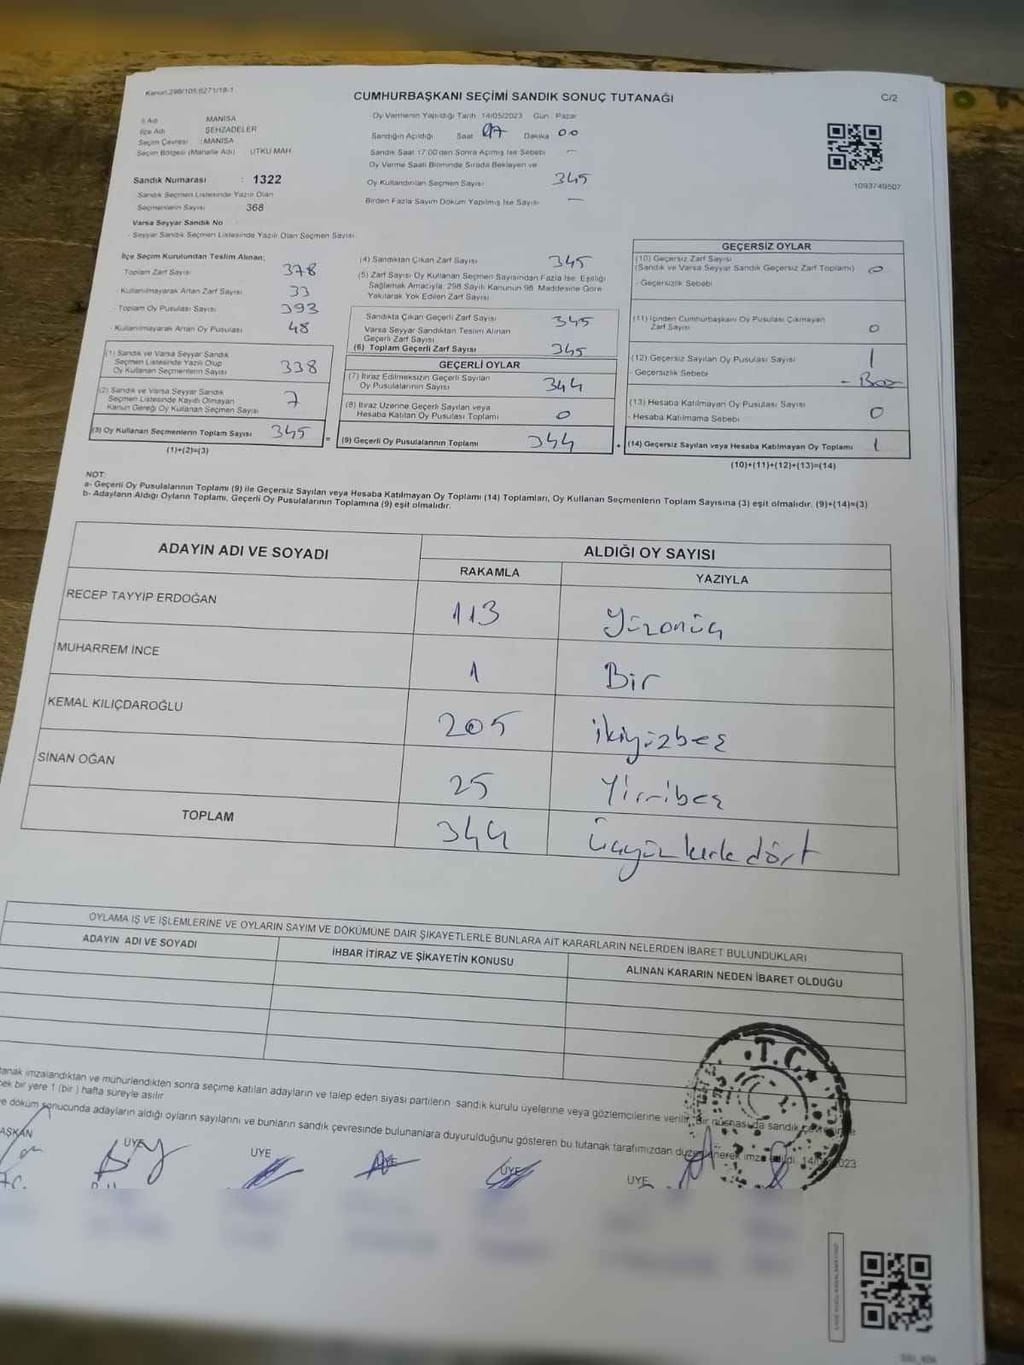 Kanun:298/105,6271/18-1
CUMHURBAŞKANI SEÇİMİ SANDIK SONUÇ TUTANAĞI
C/2
İl Adı : MANİSA
İlçe Adı : ŞEHZADELER
Seçim Çevresi : MANİSA
Seçim Bölgesi (Mahalle Adı) : UTKU MAH.
Sandık Numarası : 1322
Sandık Seçmen Listesinde Yazılı Olan
Seçmenlerin Sayısı 368
Varsa Seyyar Sandık No
Seyyar Sandık Seçmen Listesinde Yazılı Olan Seçmen Sayısı
Oy Vermenin Yapıldığı Tarih 14/05/2023 Gün : Pazar
Sandığın Açıldığı Saat 17 Dakika 00
Sandık Saat 17:00'den Sonra Açılmış İse Sebebi —
Oy Verme Saati Bitiminde Sırada Bekleyen ve
Oy Kullandırılan Seçmen Sayısı 345
Birden Fazla Sayım Döküm Yapılmış İse Sayısı —
1093749507
İlçe Seçim Kurulundan Teslim Alınan;
Toplam Zarf Sayısı 378
Kullanılmayarak Artan Zarf Sayısı 33
Toplam Oy Pusulası Sayısı 393
Kullanılmayarak Artan Oy Pusulası 48
(1) Sandık ve Varsa Seyyar Sandık
Seçmen Listesinde Yazılı Olup
Oy Kullanan Seçmenlerin Sayısı 338
(2) Sandık ve Varsa Seyyar Sandık
Seçmen Listesinde Kayıtlı Olmayan
Kanun Gereği Oy Kullanan Seçmen Sayısı 7
(3) Oy Kullanan Seçmenlerin Toplam Sayısı 345
(1)+(2)=(3)
(4) Sandıktan Çıkan Zarf Sayısı 345
(5) Zarf Sayısı Oy Kullanan Seçmen Sayısından Fazla İse, Eşitliği
Sağlamak Amacıyla, 298 Sayılı Kanunun 98. Maddesine Göre
Yakılarak Yok Edilen Zarf Sayısı
Sandıkta Çıkan Geçerli Zarf Sayısı 345
Varsa Seyyar Sandıktan Teslim Alınan
Geçerli Zarf Sayısı
(6) Toplam Geçerli Zarf Sayısı 345
GEÇERLİ OYLAR
(7) İtiraz Edilmeksizin Geçerli Sayılan
Oy Pusulalarının Sayısı 344
(8) İtiraz Üzerine Geçerli Sayılan veya
Hesaba Katılan Oy Pusulası Toplamı 0
(9) Geçerli Oy Pusulalarının Toplamı 344
GEÇERSİZ OYLAR
(10) Geçersiz Zarf Sayısı
(Sandık ve Varsa Seyyar Sandık Geçersiz Zarf Toplamı) 0
- Geçersizlik Sebebi
(11) İçinden Cumhurbaşkanı Oy Pusulası Çıkmayan
Zarf Sayısı 0
(12) Geçersiz Sayılan Oy Pusulası Sayısı 1
- Geçersizlik Sebebi - Boş
(13) Hesaba Katılmayan Oy Pusulası Sayısı 0
- Hesaba Katılmama Sebebi
(14) Geçersiz Sayılan veya Hesaba Katılmayan Oy Toplamı 1
(10)+(11)+(12)+(13)=(14)
NOT:
a- Geçerli Oy Pusulalarının Toplamı (9) ile Geçersiz Sayılan veya Hesaba Katılmayan Oy Toplamı (14) Toplamları, Oy Kullanan Seçmenlerin Toplam Sayısına (3) eşit olmalıdır. (9)+(14)=(3)
b- Adayların Aldığı Oyların Toplamı, Geçerli Oy Pusulalarının Toplamına (9) eşit olmalıdır.
ADAYIN ADI VE SOYADI
ALDIĞI OY SAYISI
RAKAMLA YAZIYLA
RECEP TAYYIP ERDOĞAN 113 Yüzonüç
MUHARREM İNCE 1 Bir
KEMAL KILIÇDAROĞLU 205 ikiyüzbeş
SİNAN OĞAN 25 Yirmibeş
TOPLAM 344 Üçyüz kırk dört
OYLAMA İŞ VE İŞLEMLERİNE VE OYLARIN SAYIM VE DÖKÜMÜNE DAİR ŞİKAYETLERLE BUNLARA AİT KARARLARIN NELERDEN İBARET BULUNDUKLARI
ADAYIN ADI VE SOYADI İHBAR İTİRAZ VE ŞİKAYETİN KONUSU ALINAN KARARIN NEDEN İBARET OLDUĞU
tanak imzalandıktan ve mühürlendikten sonra seçime katılan adayların ve talep eden siyasi partilerin sandık kurulu üyelerine veya gözlemcilerine verilir, Bir nüshası da sandık
ek bir yere 1 (bir ) hafta süreyle asılır
e döküm sonucunda adayların aldığı oyların sayılarını ve bunların sandık çevresinde bulunanlara duyurulduğunu gösteren bu tutanak tarafımızdan düzenlenerek imza edildi. 14/05/2023
T.C.
AŞKAN ÜYE ÜYE ÜYE ÜYE ÜYE